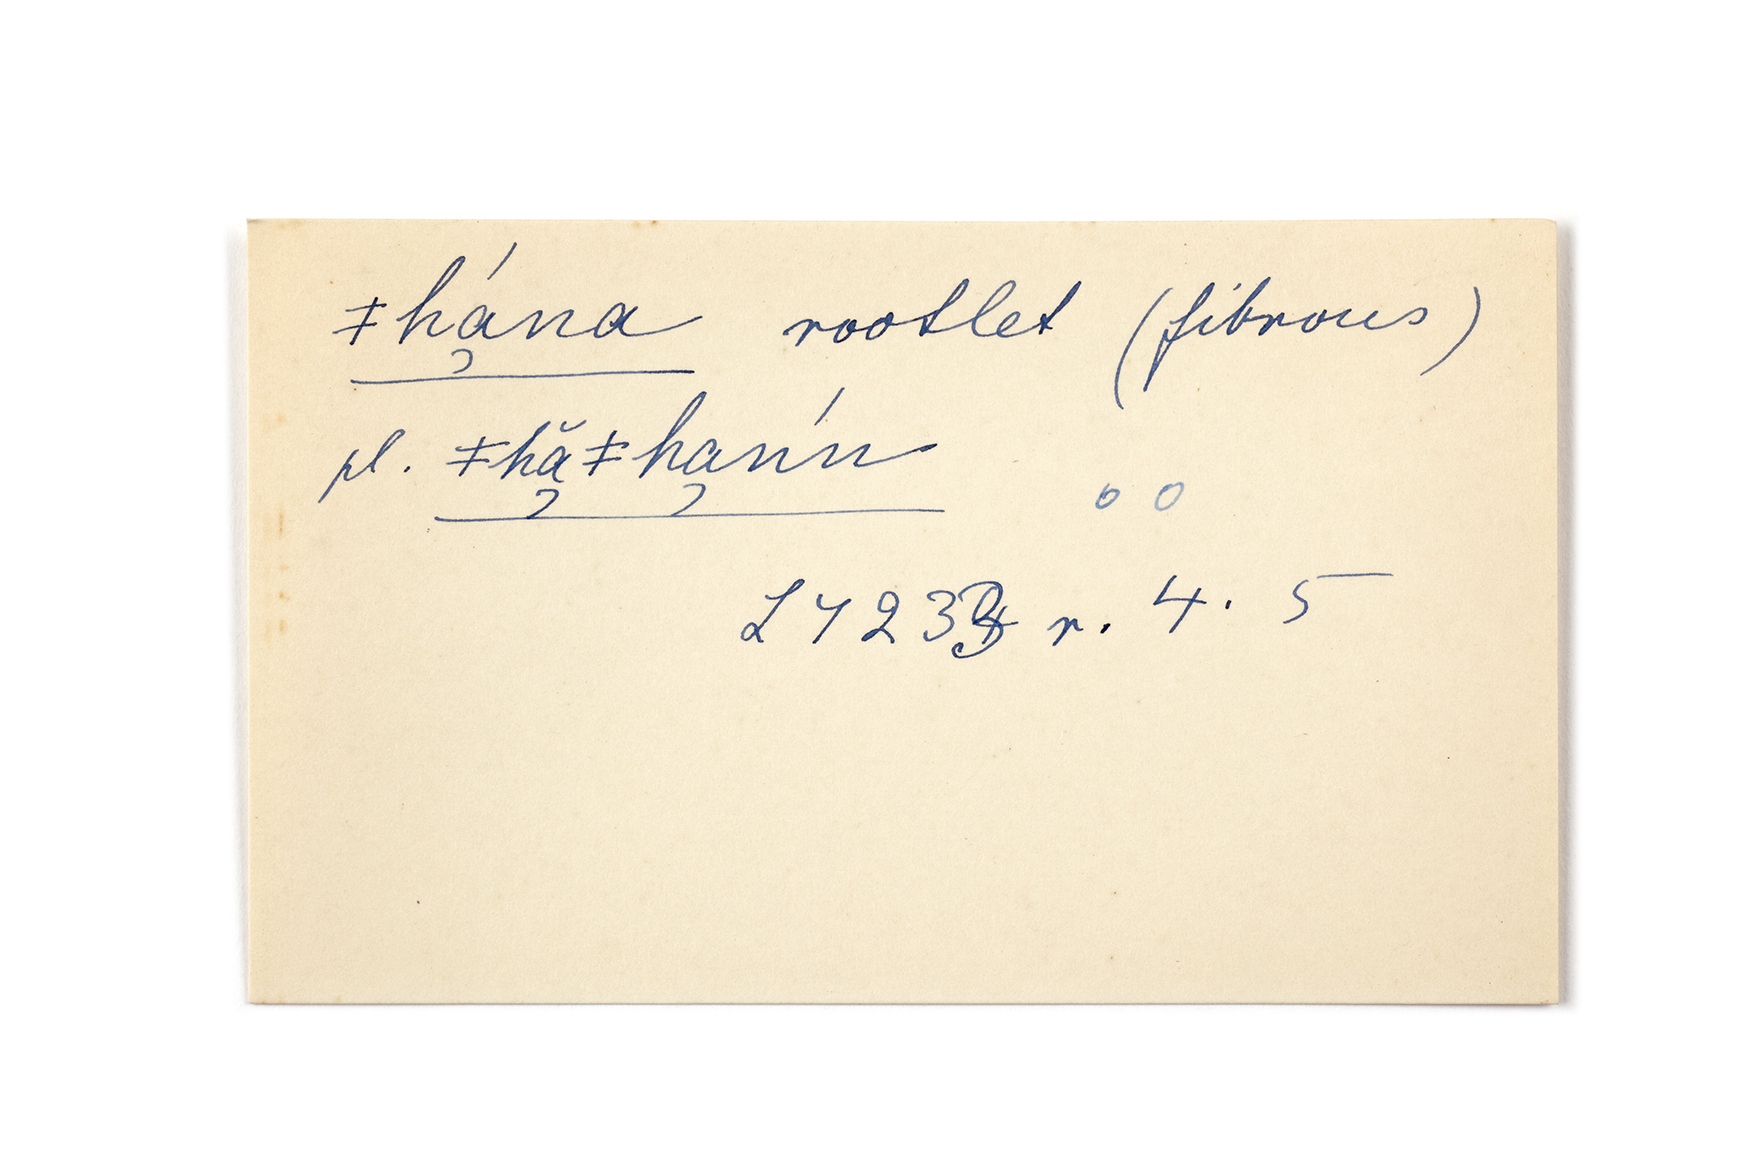 ǂhą́na rootlet (fibrous)
pl. ǂhą̆ǂhąńn
o o
r. 4. 5